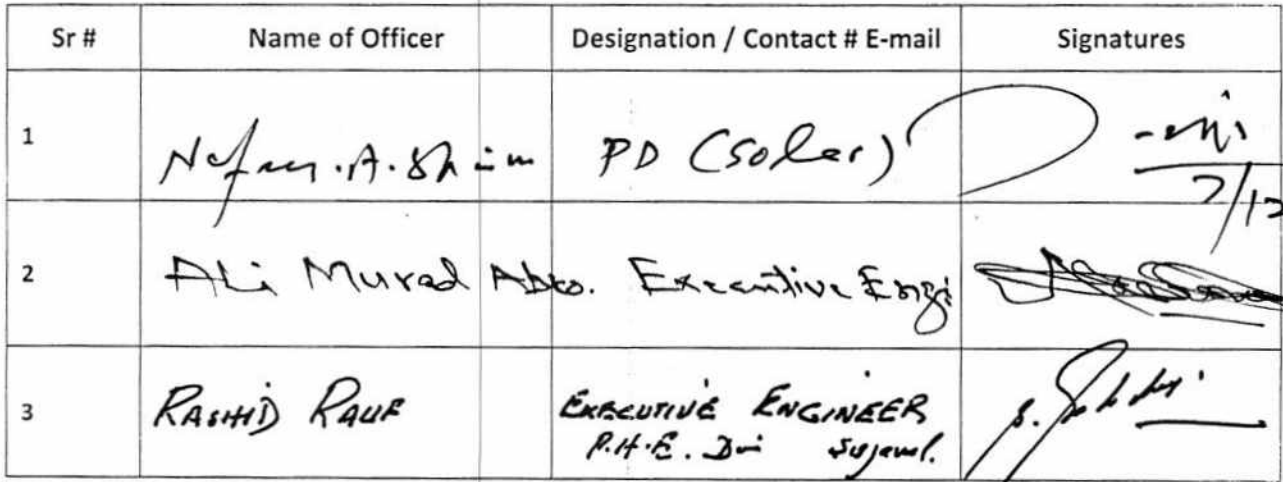 Sr # Name of Officer Designation / Contact # E-mail Signatures
1 .A. PD (Soler)
7/12
2 Ali Murad Abro. Executive Engi
3 RASHID RAUF EXECUTIVE ENGINEER
P.H.E. Div Sujawal.